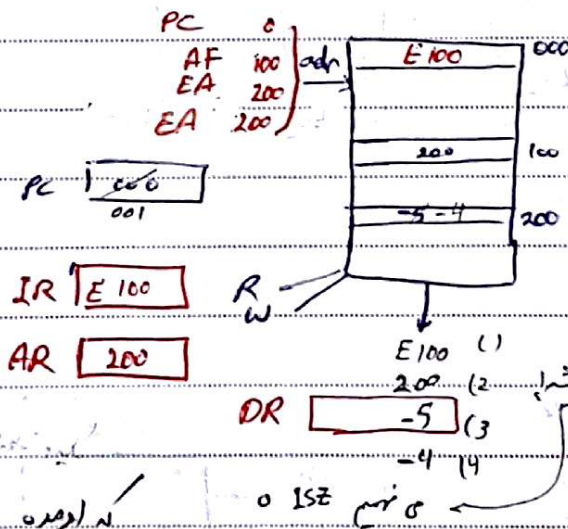 PC 0
AF 100
EA 200
EA 200
adr
E 100 000
200 100
-5 -4 200
PC 000
001
IR E 100
AR 200
R
W
E100 (1
200 (2
DR -5 (3
-4 (4
ISZ